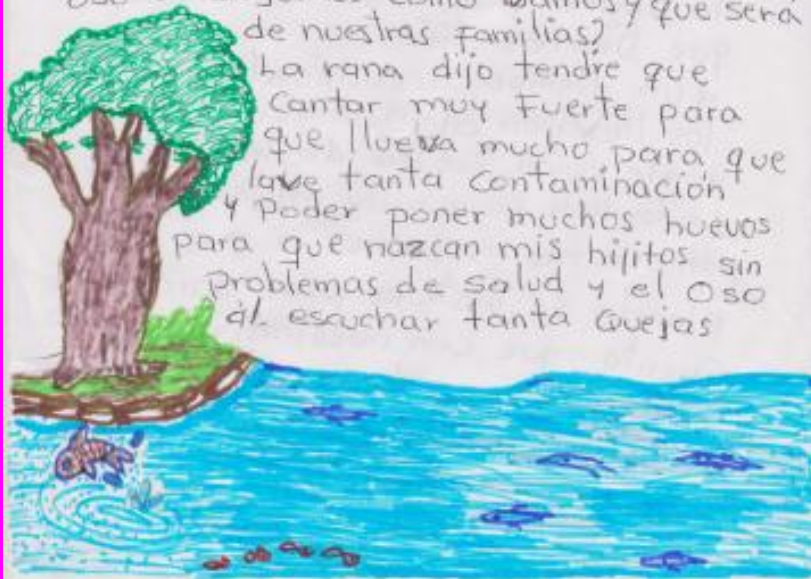 de nuestras familias?
La rana dijo tendre que
Cantar muy Fuerte para
que llueva mucho para que
lave tanta contaminación
y Poder poner muchos huevos
para que nazcan mis hijitos sin
problemas de salud y el Oso
al escuchar tanta Quejas